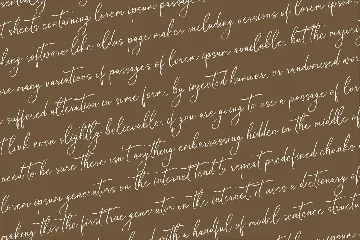 t sheets containing lorem ipsum passag
hing software like aldus page maker including versions of lorem ipsum
are many variations of passages of lorem ipsum available, but the major
suffered alteration in some form, by injected humour, or randomised wor
t look even slightly believable. if you are going to use a passage of lor
need to be sure there isn't anything embarrassing hidden in the middle of
lorem ipsum generators on the internet tend to repeat predefined chunks
making this the first true generator on the internet. it uses a dictionary of
with a handful of model sentence structu